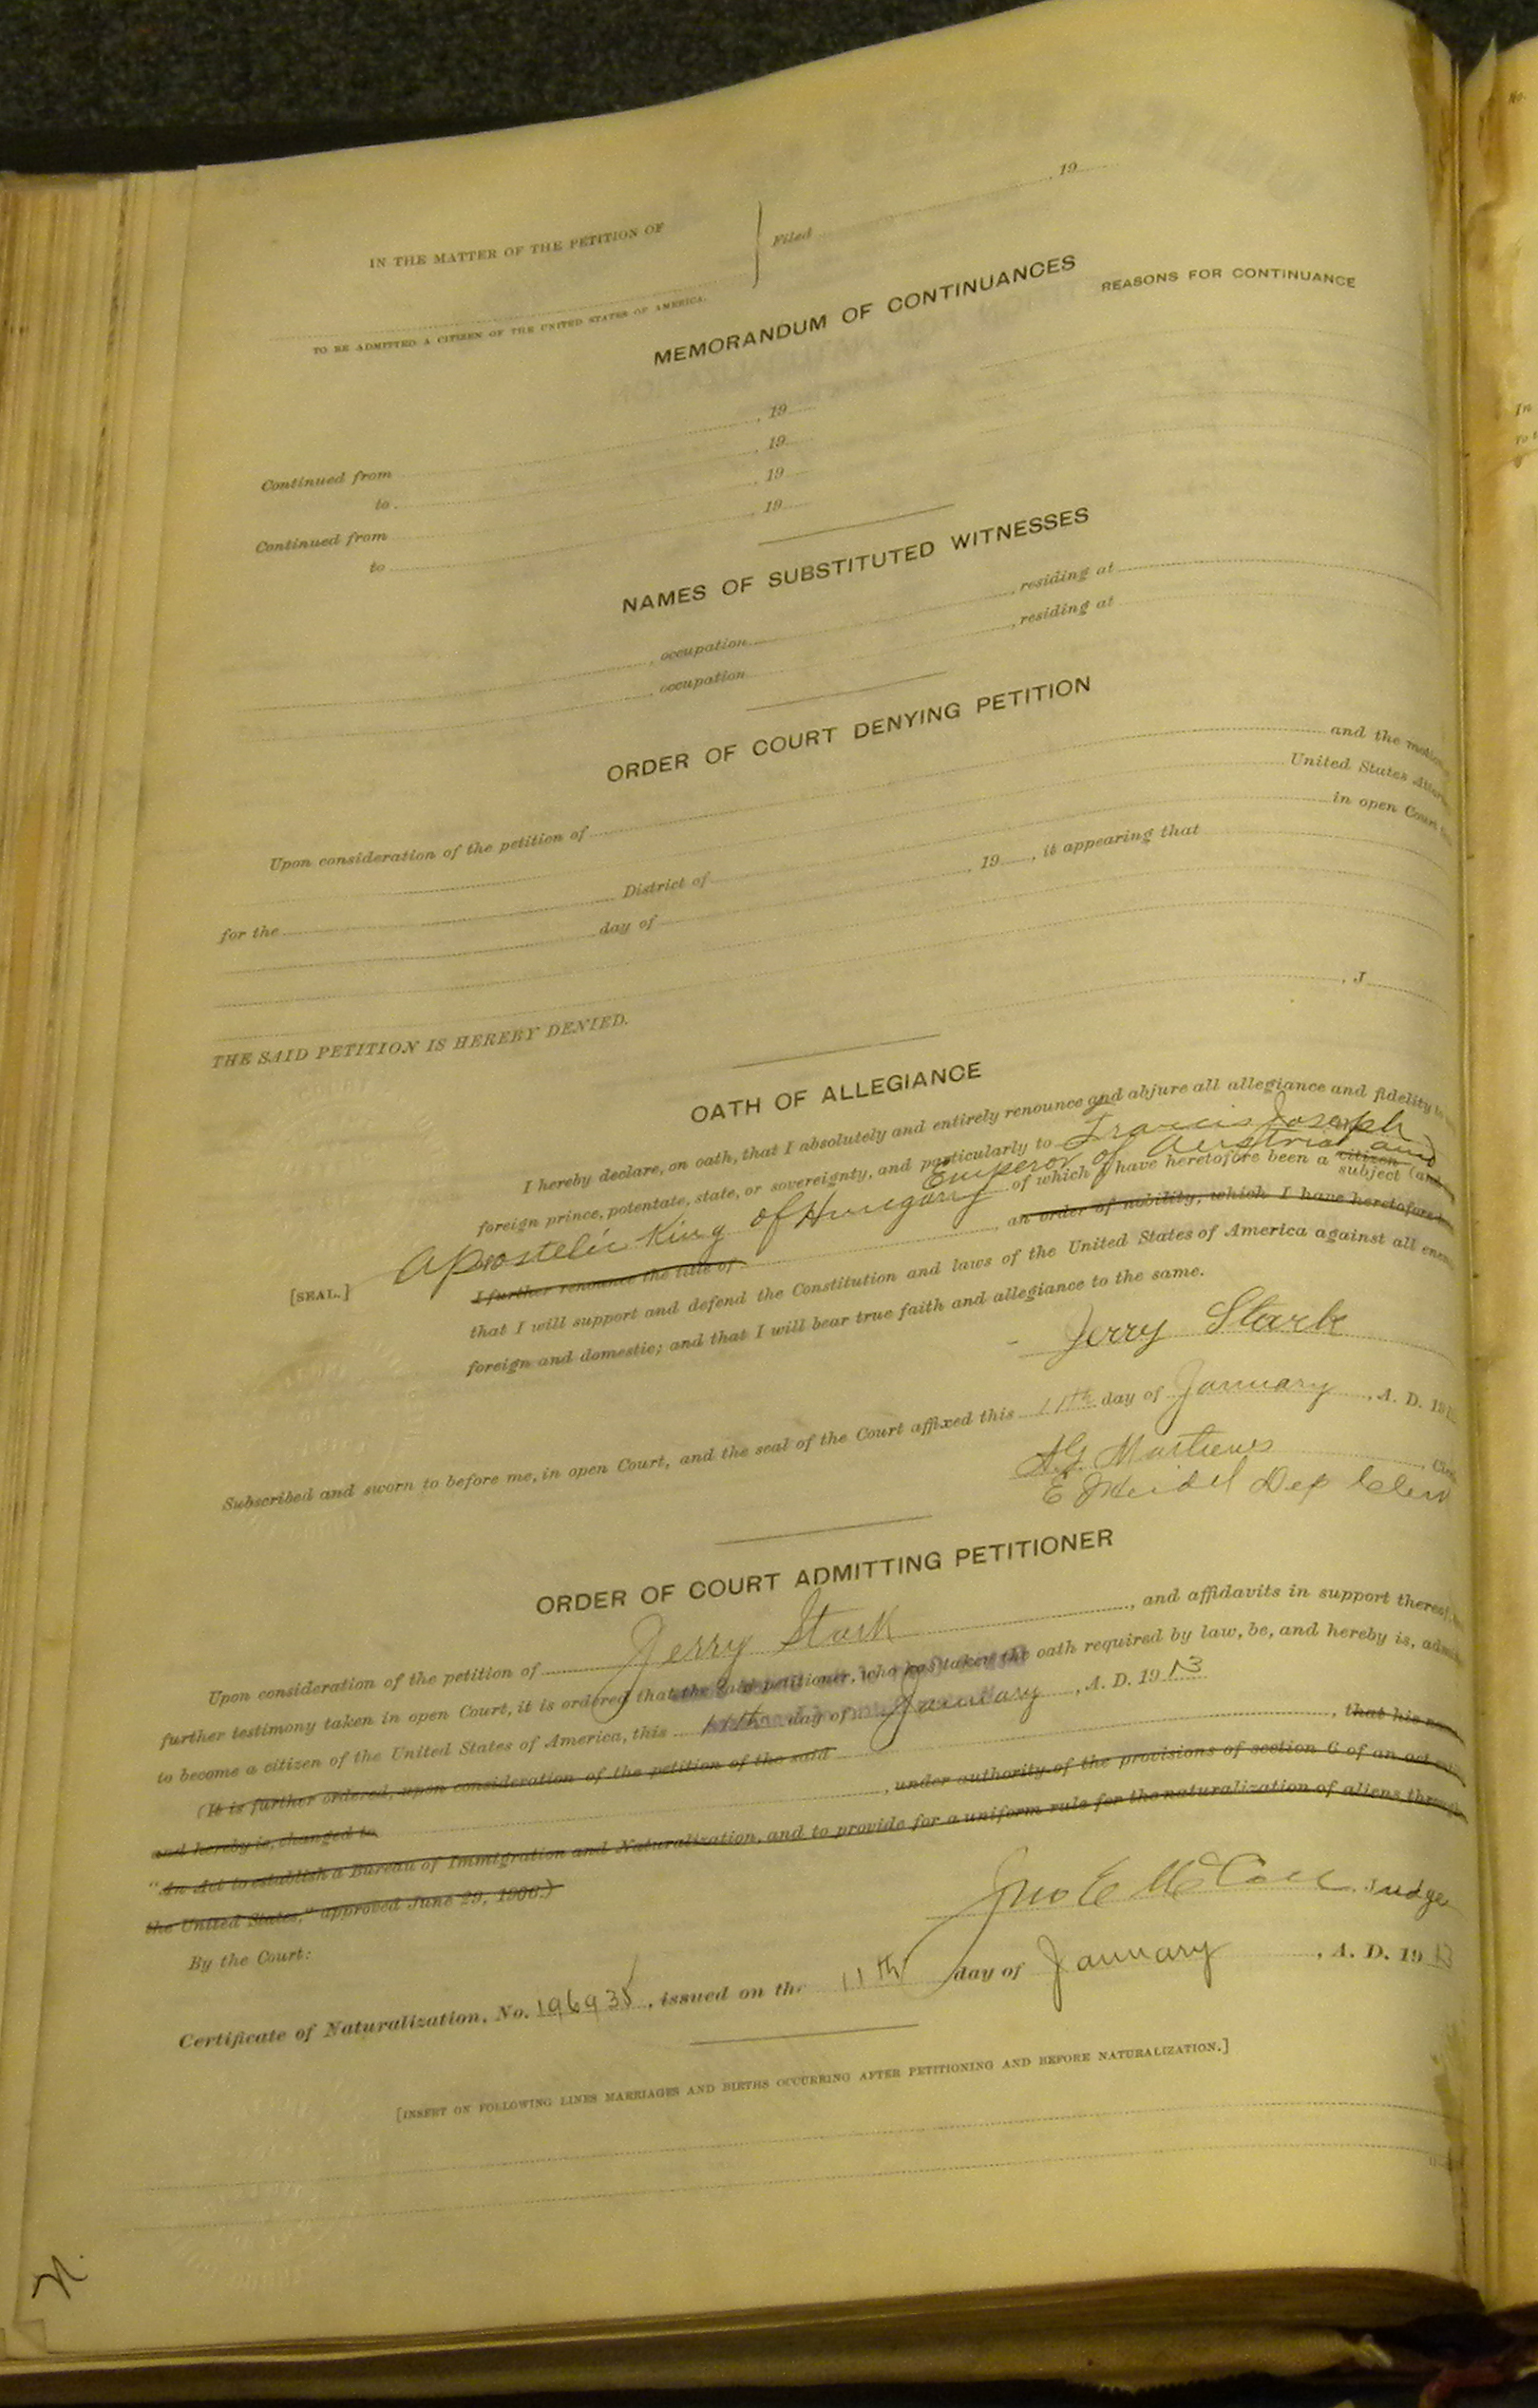 IN THE MATTER OF THE PETITION OF
Filed , 19
TO BE ADMITTED A CITIZEN OF THE UNITED STATES OF AMERICA.
MEMORANDUM OF CONTINUANCES
REASONS FOR CONTINUANCE
Continued from , 19
to , 19
Continued from , 19
to , 19
NAMES OF SUBSTITUTED WITNESSES
, occupation , residing at
, occupation , residing at
ORDER OF COURT DENYING PETITION
Upon consideration of the petition of and the motion
United States
for the District of in open Court
day of , 19 , it appearing that
THE SAID PETITION IS HEREBY DENIED.
, J
OATH OF ALLEGIANCE
I hereby declare, on oath, that I absolutely and entirely renounce and abjure all allegiance and fidelity
foreign prince, potentate, state, or sovereignty, and particularly to Francis Joseph
Emperor of Austria and
Apostolic King of Hungary of which I have heretofore been a citizen subject (and
[SEAL.]
I further renounce the title of , an order of nobility, which I have heretofore
that I will support and defend the Constitution and laws of the United States of America against all
foreign and domestic; and that I will bear true faith and allegiance to the same.
Jerry Stark
Subscribed and sworn to before me, in open Court, and the seal of the Court affixed this 11th day of January , A. D. 19
ORDER OF COURT ADMITTING PETITIONER
Upon consideration of the petition of Jerry Stark , and affidavits in support thereof
further testimony taken in open Court, it is ordered that the said petitioner, who has taken the oath required by law, be, and hereby is,
to become a citizen of the United States of America, this 11th day of January , A. D. 1913
(It is further ordered, upon consideration of the petition of the said , that his
and hereby is, changed to , under authority of the provisions of section 6 of an act
"An Act to establish a Bureau of Immigration and Naturalization, and to provide for a uniform rule for the naturalization of aliens
the United States," approved June 29, 1906.)
By the Court:
Judge
Certificate of Naturalization, No. , issued on the 11th day of January , A. D. 1913
[INSERT ON FOLLOWING LINES MARRIAGES AND BIRTHS OCCURRING AFTER PETITIONING AND BEFORE NATURALIZATION.]